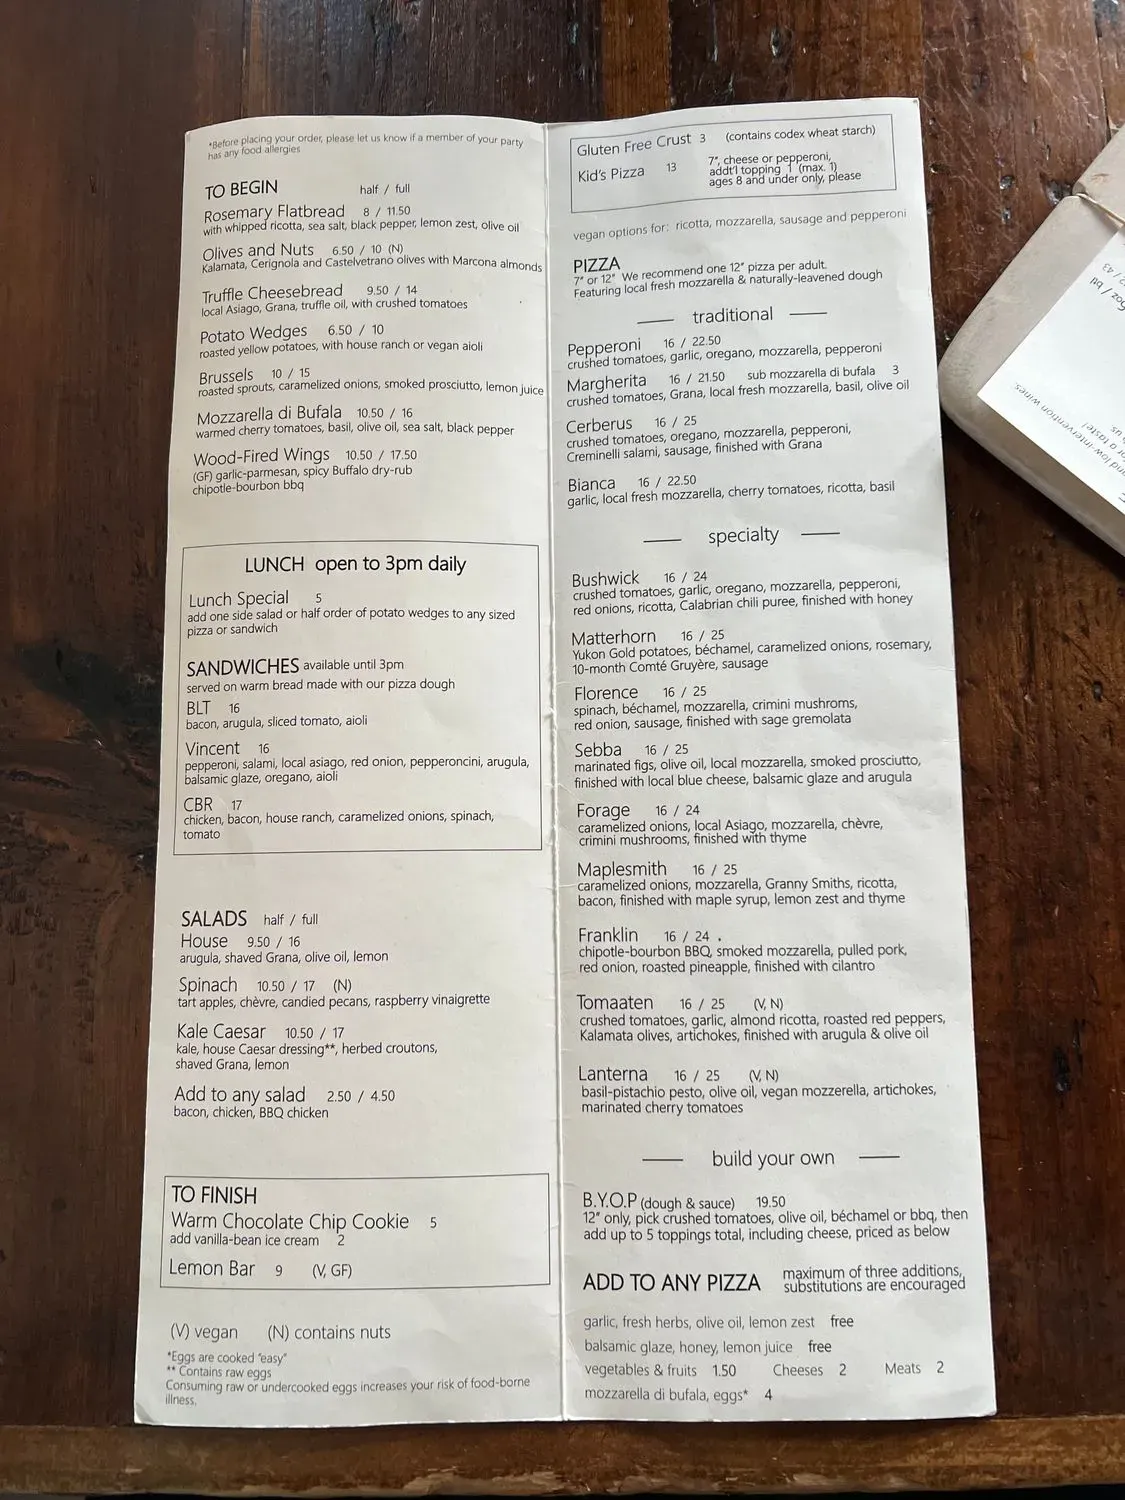 *Before placing your order, please let us know if a member of your party
has any food allergies
TO BEGIN half / full
Rosemary Flatbread 8 / 11.50
with whipped ricotta, sea salt, black pepper, lemon zest, olive oil
Olives and Nuts 6.50 / 10 (N)
Kalamata, Cerignola and Castelvetrano olives with Marcona almonds
Truffle Cheesebread 9.50 / 14
local Asiago, Grana, truffle oil, with crushed tomatoes
Potato Wedges 6.50 / 10
roasted yellow potatoes, with house ranch or vegan aioli
Brussels 10 / 15
roasted sprouts, caramelized onions, smoked prosciutto, lemon juice
Mozzarella di Bufala 10.50 / 16
warmed cherry tomatoes, basil, olive oil, sea salt, black pepper
Wood-Fired Wings 10.50 / 17.50
(GF) garlic-parmesan, spicy Buffalo dry-rub
chipotle-bourbon bbq
LUNCH open to 3pm daily
Lunch Special 5
add one side salad or half order of potato wedges to any sized
pizza or sandwich
SANDWICHES available until 3pm
served on warm bread made with our pizza dough
BLT 16
bacon, arugula, sliced tomato, aioli
Vincent 16
pepperoni, salami, local asiago, red onion, pepperoncini, arugula,
balsamic glaze, oregano, aioli
CBR 17
chicken, bacon, house ranch, caramelized onions, spinach,
tomato
SALADS half / full
House 9.50 / 16
arugula, shaved Grana, olive oil, lemon
Spinach 10.50 / 17 (N)
tart apples, chèvre, candied pecans, raspberry vinaigrette
Kale Caesar 10.50 / 17
kale, house Caesar dressing**, herbed croutons,
shaved Grana, lemon
Add to any salad 2.50 / 4.50
bacon, chicken, BBQ chicken
TO FINISH
Warm Chocolate Chip Cookie 5
add vanilla-bean ice cream 2
Lemon Bar 9 (V, GF)
(V) vegan (N) contains nuts
*Eggs are cooked "easy"
** Contains raw eggs
Consuming raw or undercooked eggs increases your risk of food-borne
illness.
Gluten Free Crust 3 (contains codex wheat starch)
Kid's Pizza 13 7", cheese or pepperoni,
addt'l topping 1 (max. 1)
ages 8 and under only, please
vegan options for: ricotta, mozzarella, sausage and pepperoni
PIZZA
7" or 12" We recommend one 12" pizza per adult.
Featuring local fresh mozzarella & naturally-leavened dough
traditional
Pepperoni 16 / 22.50
crushed tomatoes, garlic, oregano, mozzarella, pepperoni
Margherita 16 / 21.50 sub mozzarella di bufala 3
crushed tomatoes, Grana, local fresh mozzarella, basil, olive oil
Cerberus 16 / 25
crushed tomatoes, oregano, mozzarella, pepperoni,
Creminelli salami, sausage, finished with Grana
Bianca 16 / 22.50
garlic, local fresh mozzarella, cherry tomatoes, ricotta, basil
specialty
Bushwick 16 / 24
crushed tomatoes, garlic, oregano, mozzarella, pepperoni,
red onions, ricotta, Calabrian chili puree, finished with honey
Matterhorn 16 / 25
Yukon Gold potatoes, béchamel, caramelized onions, rosemary,
10-month Comté Gruyère, sausage
Florence 16 / 25
spinach, béchamel, mozzarella, crimini mushroms,
red onion, sausage, finished with sage gremolata
Sebba 16 / 25
marinated figs, olive oil, local mozzarella, smoked prosciutto,
finished with local blue cheese, balsamic glaze and arugula
Forage 16 / 24
caramelized onions, local Asiago, mozzarella, chèvre,
crimini mushrooms, finished with thyme
Maplesmith 16 / 25
caramelized onions, mozzarella, Granny Smiths, ricotta,
bacon, finished with maple syrup, lemon zest and thyme
Franklin 16 / 24
chipotle-bourbon BBQ, smoked mozzarella, pulled pork,
red onion, roasted pineapple, finished with cilantro
Tomaaten 16 / 25 (V, N)
crushed tomatoes, garlic, almond ricotta, roasted red peppers,
Kalamata olives, artichokes, finished with arugula & olive oil
Lanterna 16 / 25 (V, N)
basil-pistachio pesto, olive oil, vegan mozzerella, artichokes,
marinated cherry tomatoes
build your own
B.Y.O.P (dough & sauce) 19.50
12" only, pick crushed tomatoes, olive oil, béchamel or bbq, then
add up to 5 toppings total, including cheese, priced as below
ADD TO ANY PIZZA maximum of three additions,
substitutions are encouraged
garlic, fresh herbs, olive oil, lemon zest free
balsamic glaze, honey, lemon juice free
vegetables & fruits 1.50 Cheeses 2 Meats 2
mozzarella di bufala, eggs* 4
oz / btl
and low-intervention wines
or a taste!
us